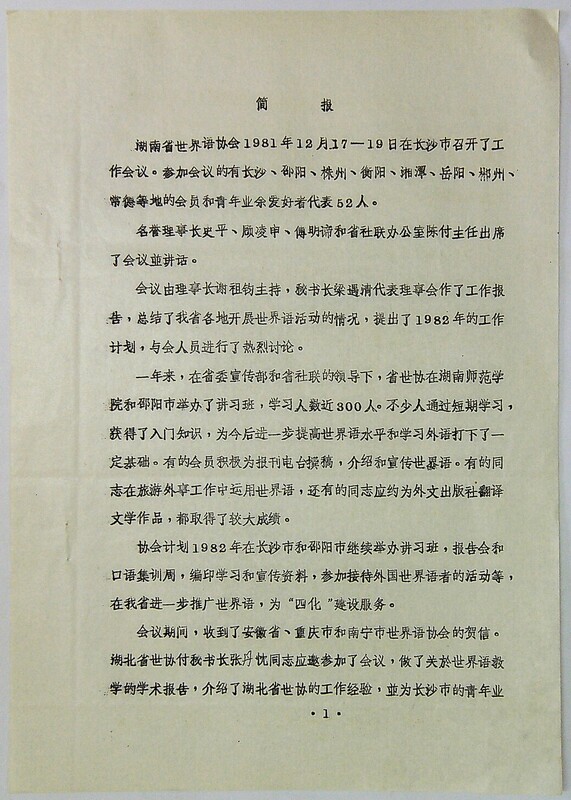 简 报
湖南省世界语协会1981年12月17—19日在长沙市召开了工
作会议。参加会议的有长沙、邵阳、株州、衡阳、湘潭、岳阳、郴州、
常德等地的会员和青年业余爱好者代表52人。
名誉理事长史平、顾凌申、傅明谛和省社联办公室陈付主任出席
了会议並讲话。
会议由理事长谢祖钧主持，秘书长梁遇清代表理事会作了工作报
告，总结了我省各地开展世界语活动的情况，提出了1982年的工作
计划，与会人员进行了热烈讨论。
一年来，在省委宣传部和省社联的领导下，省世协在湖南师范学
院和邵阳市举办了讲习班，学习人数近300人。不少人通过短期学习，
获得了入门知识，为今后进一步提高世界语水平和学习外语打下了一
定基础。有的会员积极为报刊电台撰稿，介绍和宣传世界语。有的同
志在旅游外事工作中运用世界语，还有的同志应约为外文出版社翻译
文学作品，都取得了较大成绩。
协会计划1982年在长沙市和邵阳市继续举办讲习班，报告会和
口语集训周，编印学习和宣传资料，参加接待外国世界语者的活动等，
在我省进一步推广世界语，为“四化”建设服务。
会议期间，收到了安徽省、重庆市和南宁市世界语协会的贺信。
湖北省世协付秘书长张丹忱同志应邀参加了会议，做了关於世界语教
学的学术报告，介绍了湖北省世协的工作经验，並为长沙市的青年业
·1·